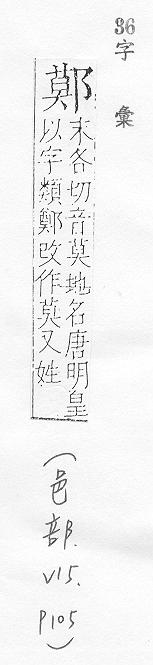 36
字彙
鄚
末各切音莫地名唐明皇
以字類鄭改作莫又姓
(邑部.
V15.
P105)